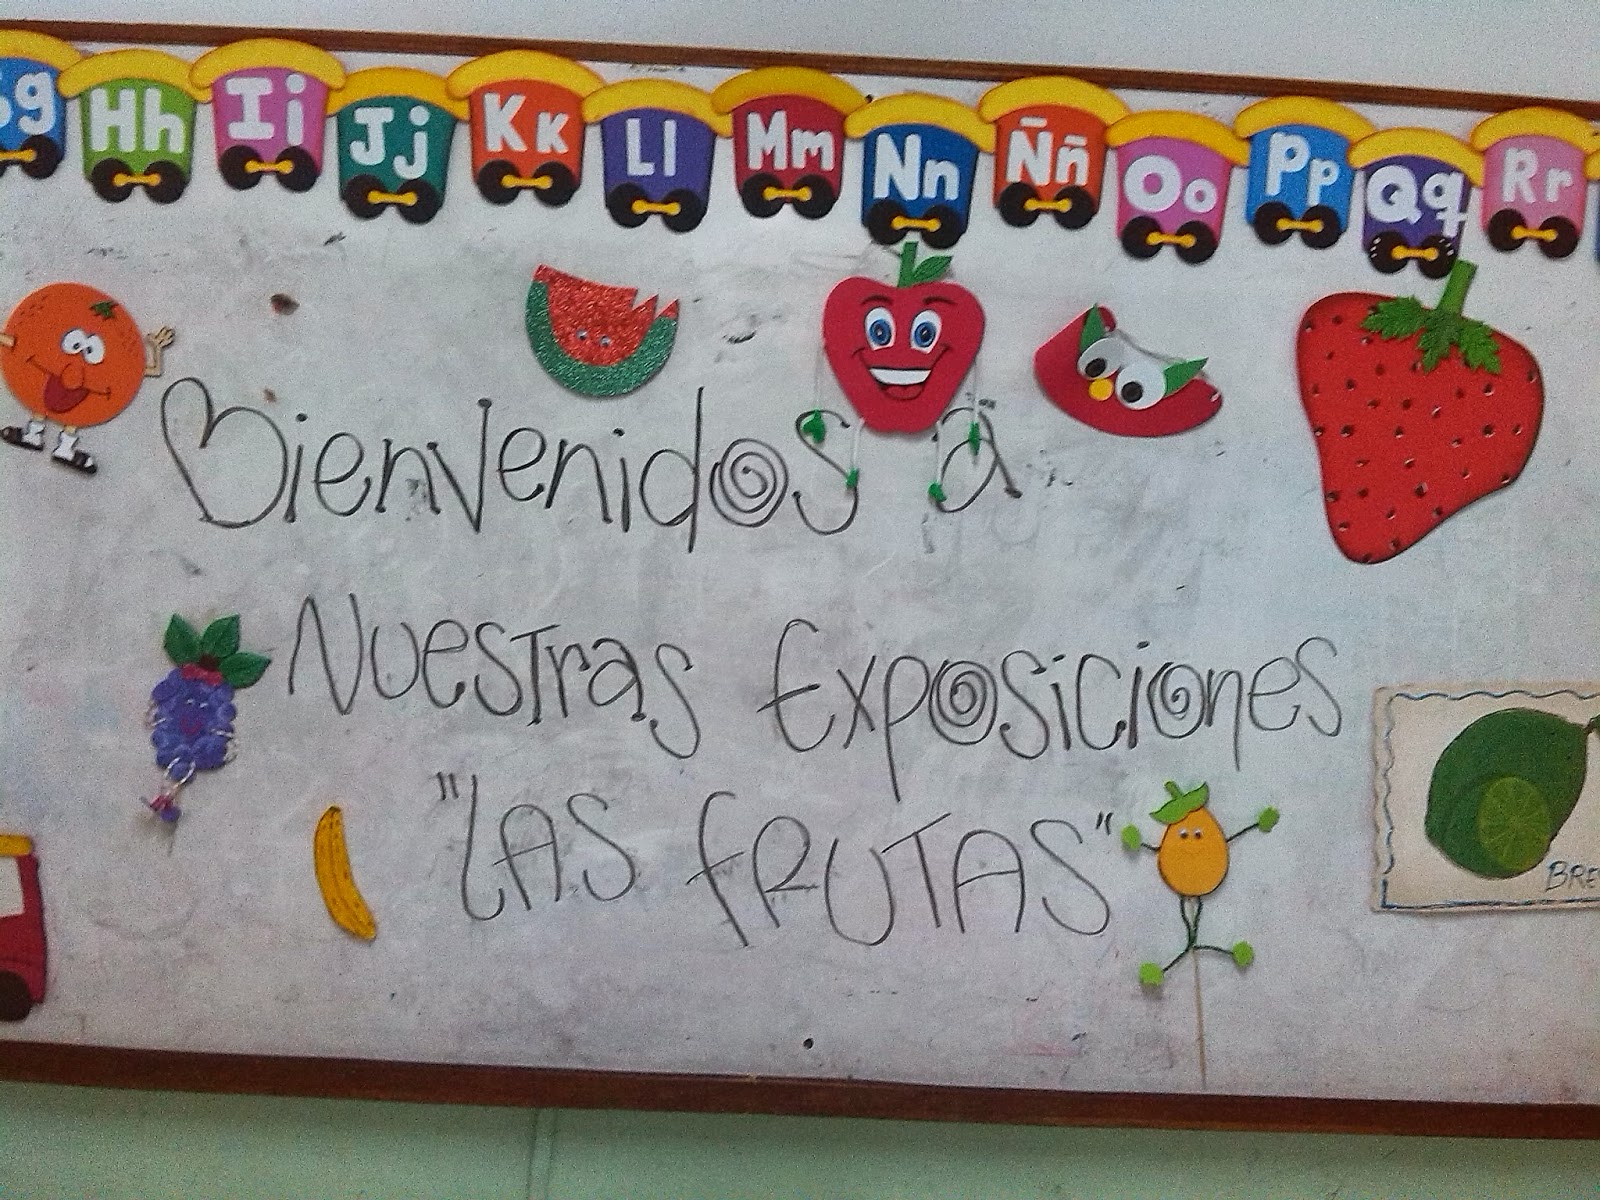 Gg Hh Ii Jj Kk Ll Mm Nn Ññ Oo Pp Qq Rr
Bienvenidos a
Nuestras Exposiciones
"LAS FRUTAS"